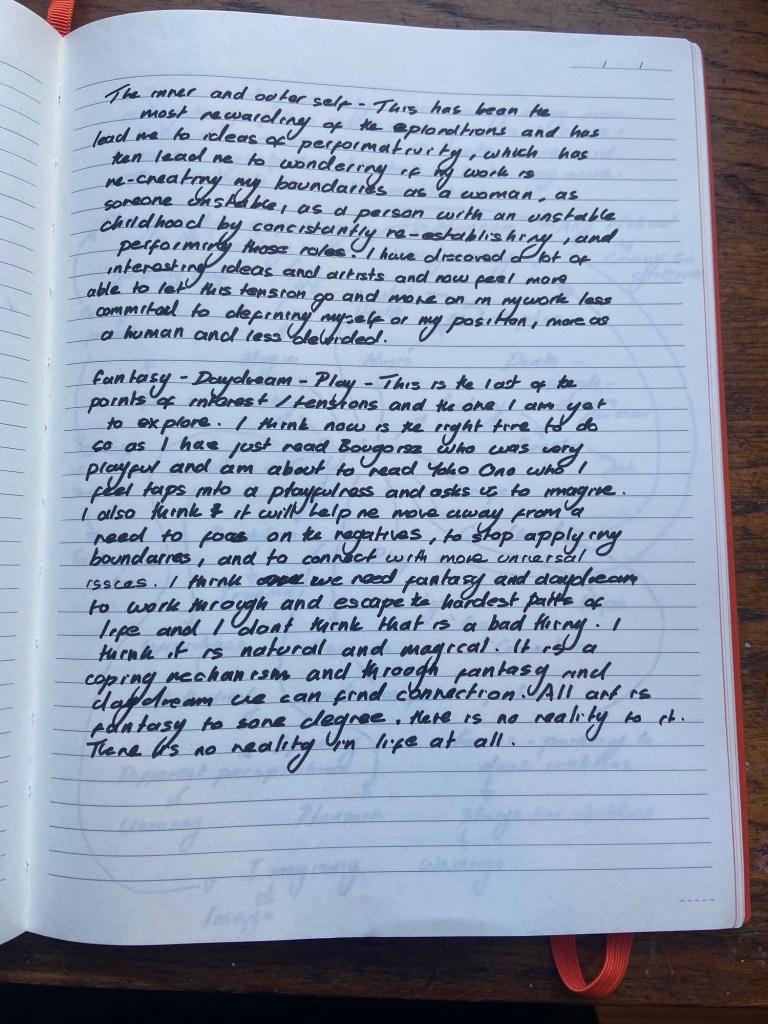 The inner and outer self - This has been the
most rewarding of the explorations and has
lead me to ideas of performativity, which has
then lead me to wondering if my work is
re-creating my boundaries as a woman, as
someone unstable, as a person with an unstable
childhood by concistantly re-establishing, and
performing those roles. I have discoved a lot of
interesting ideas and artists and now feel more
able to let this tension go and move on in my work less
commited to defining myself or my position, more as
a human and less devided.
Fantasy - Daydream - Play - This is the last of the
points of interest / tensions and the one I am yet
to explore. I think now is the right time to do
so as I have just read who was very
playful and am about to read Yoko Ono who I
feel taps into a playfulness and asks us to imagine.
I also think it will help me move away from a
need to focus on the negatives, to stop applying
boundaries, and to connect with more universal
issues. I think we need fantasy and daydream
to work through and escape the hardest parts of
life and I dont think that is a bad thing. I
think it is natural and magical. It is a
coping mechanism and through fantasy and
daydream we can find connection. All art is
fantasy to some degree, there is no reality to it.
There is no reality in life at all.